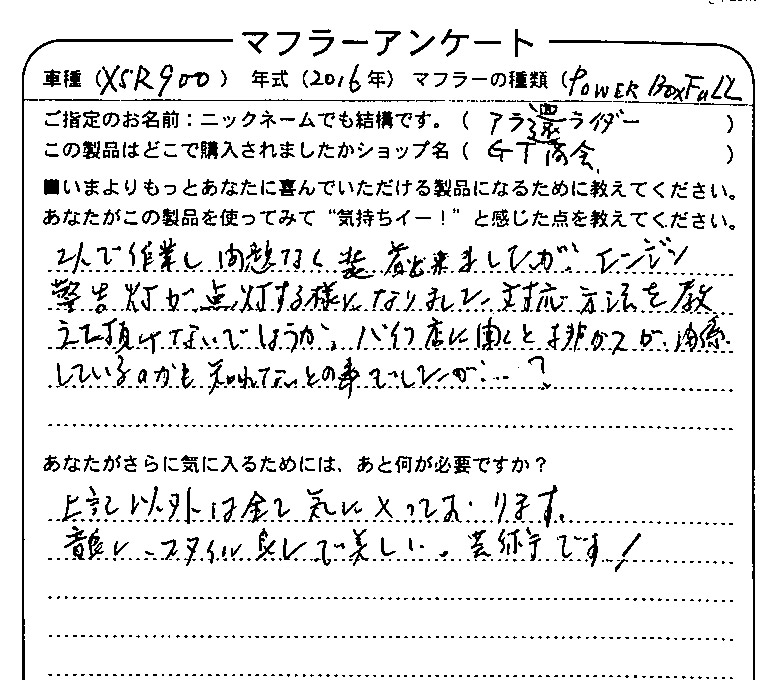 マフラーアンケート
車種（XSR900） 年式（2016年） マフラーの種類（POWER BOX FULL
ご指定のお名前：ニックネームでも結構です。（ アラ還ライダー ）
この製品はどこで購入されましたかショップ名（ GT商会 ）
■いまよりもっとあなたに喜んでいただける製品になるために教えてください。
あなたがこの製品を使ってみて“気持ちイー！”と感じた点を教えてください。
2人で作業し問題なく装着出来ましたが、エンジン
警告灯が点灯する様になりました。対応方法を教
えて頂けないでしょうか。バイク店に聞くと排ガスが関係
しているのかも知れないとの事でしたが…？
あなたがさらに気に入るためには、あと何が必要ですか？
上記以外は全て気に入っております。
音良し、スタイル良しで美しい。芸術です！